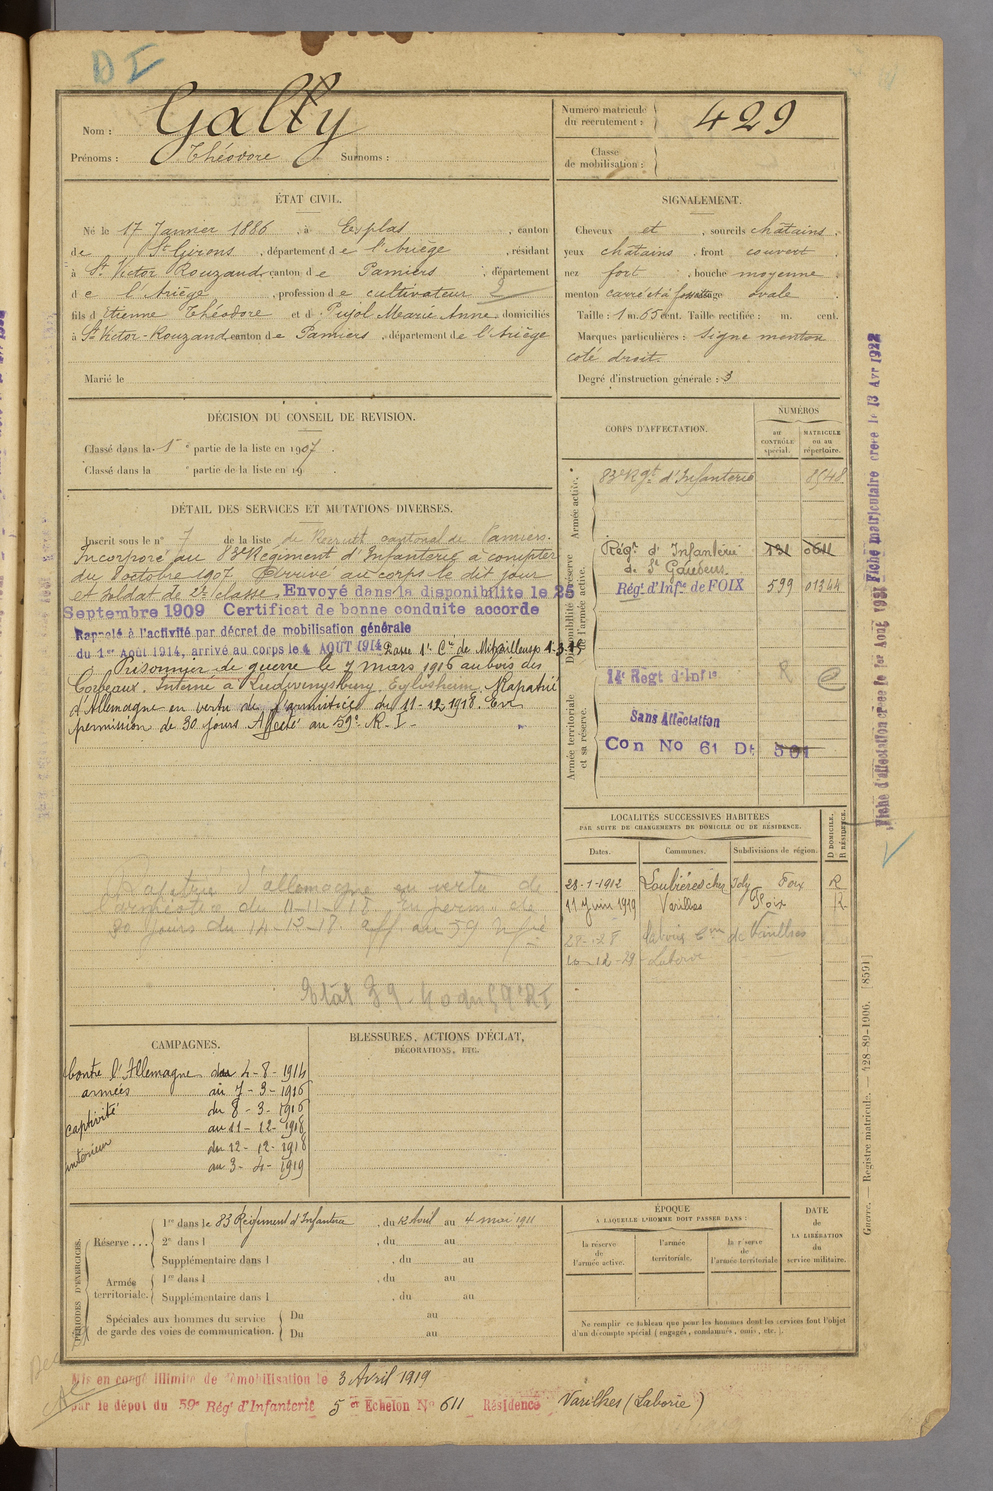 D I
Nom : Gally
Prénoms : Théodore Surnoms :
Numéro matricule du recrutement : 429
Classe de mobilisation :
ÉTAT CIVIL.
Né le 17 Janvier 1886, à Esplas, canton
de St Girons, département de l'Ariège, résidant
à St Victor Rouzaud canton de Pamiers, département
de l'Ariège, profession de cultivateur 2
fils d'Etienne Théodore et d Pujol Marie Anne domiciliés
à St Victor-Rouzaud canton de Pamiers, département de l'Ariège
Marié le
SIGNALEMENT.
Cheveux et, sourcils chatains,
yeux chatains, front couvert
nez fort, bouche moyenne,
menton carré et à fossette visage ovale.
Taille : 1 m. 55 cent. Taille rectifiée : m. cent.
Marques particulières : Signe menton
coté droit.
Degré d'instruction générale : 3
DÉCISION DU CONSEIL DE REVISION.
Classé dans la 1e partie de la liste en 1907.
Classé dans la e partie de la liste en 19 .
DÉTAIL DES SERVICES ET MUTATIONS DIVERSES.
Inscrit sous le n° 7 de la liste de Recrutt cantonal de Pamiers.
Incorporé au 83e Régiment d'Infanterie à compter
du 8 octobre 1907. Arrivé au corps le dit jour
et Soldat de 2e classe. Envoyé dans la disponibilité le 25
Septembre 1909 Certificat de bonne conduite accordé
Rappelé à l'activité par décret de mobilisation générale
du 1er Août 1914, arrivé au corps le 4 AOUT 1914 Passé 1e Cie de Mitrailleuses 1.3.15
Prisonnier de guerre le 7 mars 1916 au bois des
Corbeaux. Interné à Eglosheim. Rapatrié
d'Allemagne en vertu de l'armistice du 11-12-1918. En
permission de 30 jours Affecté au 59e R.I.
Rapatrié d'allemagne en vertu de
l'armistice du 11-11-18 En perm. de
30 jours du 14-12-18. aff. au 59
CORPS D'AFFECTATION.
NUMÉROS
AU CONTRÔLE spécial.
MATRICULE ou au répertoire.
Armée active.
83e Rgt d'Infanterie 8548
Disponibilité et réserve de l'armée active.
Régt d'Infanterie 131 0611
de St Gaudens.
Régt d'Infie de FOIX 599 01344
Armée territoriale et sa réserve.
14e Régt d'Infie R
Sans Affectation
Con No 61 Dt 501
LOCALITÉS SUCCESSIVES HABITÉES
PAR SUITE DE CHANGEMENTS DE DOMICILE OU DE RÉSIDENCE.
Dates. Communes. Subdivisions de région. D DOMICILE. R RÉSIDENCE.
28-1-1912 Loubières Foix R
11 Juin 1919 Varilhes Foix R
28-1-28 Laborie Cne de Varilhes
10-12-28 Laborie
Fiche d'affectation créée le 1er Août 1921 Fiche matriculaire créée le 13 Avr 1922
CAMPAGNES.
Contre l'Allemagne du 4-8-1914
armées au 7-3-1916
captivité du 8-3-1916
au 11-12-1918
intérieur du 12-12-1918
au 3-4-1919
BLESSURES, ACTIONS D'ÉCLAT,
DÉCORATIONS, ETC.
PÉRIODES D'EXERCICES.
Réserve ... 1re dans le 83 Régiment d'Infanterie, du 12 Avril au 4 mai 1911
2e dans l , du au
Supplémentaire dans l , du au
Armée territoriale. 1re dans l , du au
Supplémentaire dans l , du au
Spéciales aux hommes du service de garde des voies de communication. Du au
Du au
ÉPOQUE
A LAQUELLE L'HOMME DOIT PASSER DANS :
la réserve de l'armée active.
l'armée territoriale.
la réserve de l'armée territoriale
DATE de LA LIBÉRATION du service militaire.
Ne remplir ce tableau que pour les hommes dont les services font l'objet
d'un décompte spécial (engagés, condamnés, omis, etc.).
Guerre. — Registre matricule. — 128-89-1906. [8591]
Mis en congé illimité de démobilisation le 3 Avril 1919
par le dépôt du 59e Régt d'Infanterie 5 e Echelon No 611 Résidence Varilhes (Laborie)